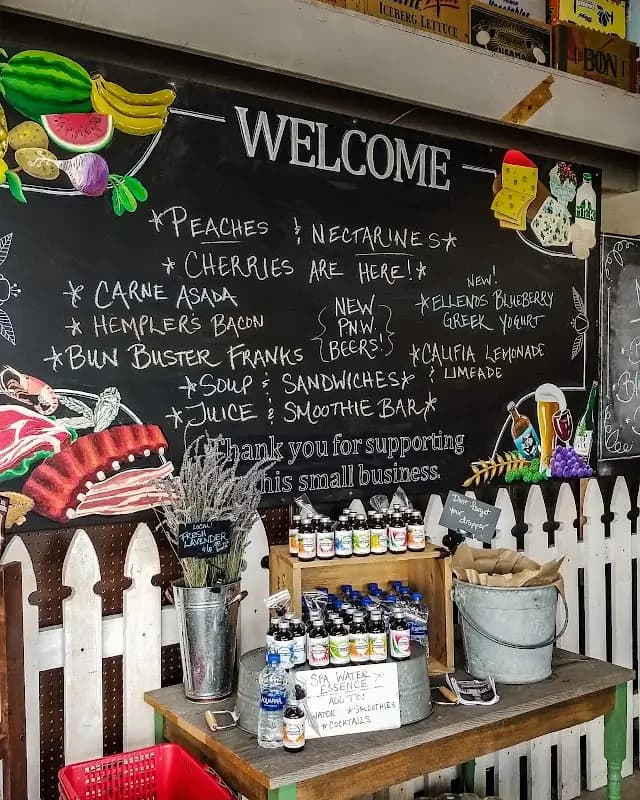 ICEBERG LETTUCE
BON
WELCOME
*PEACHES & NECTARINES*
*CHERRIES ARE HERE!*
*CARNE ASADA
*HEMPLER'S BACON
*BUN BUSTER FRANKS
{NEW
PNW
BEERS!}
NEW!
*ELLENOS BLUEBERRY
GREEK YOGURT
*CALIFIA LEMONADE
& LIMEADE
*SOUP & SANDWICHES*
*JUICE & SMOOTHIE BAR*
Thank you for supporting
this small business.
MILK
LOCAL!
FRESH
LAVENDER
Don't forget
your
dropper
SPA WATER
ESSENCE
ADD TO:
WATER *SMOOTHIES
*COCKTAILS
AQUAFINA